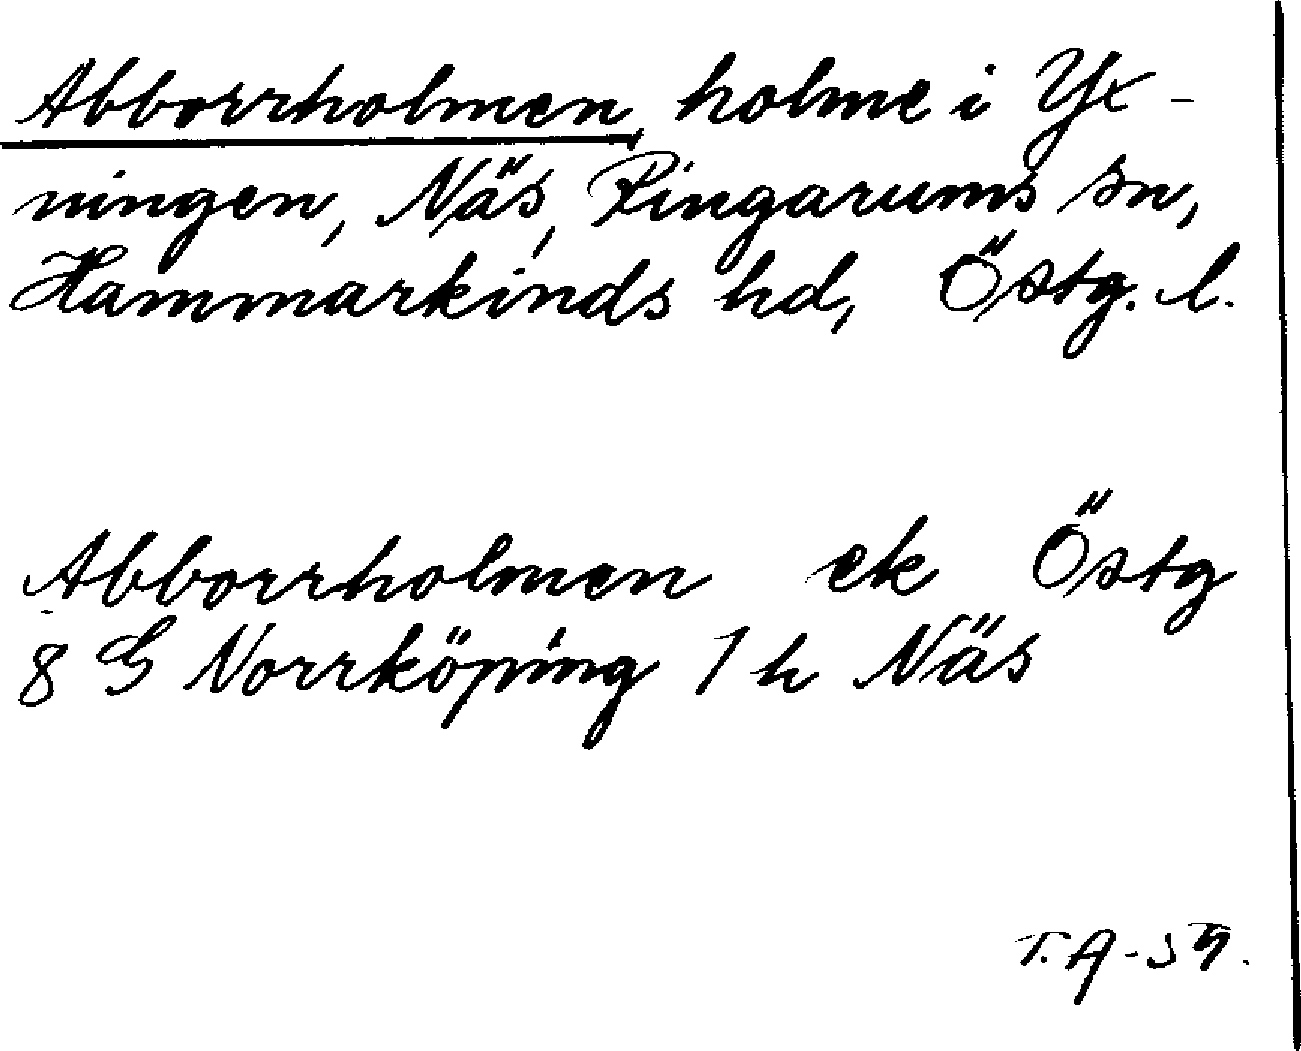 Abborrholmen, holme i Yx-
ningen, Näs, Ringarums sn,
Hammarkinds hd, Östg. l.
Abborrholmen ek Östg
8 G Norrköping 1 h Näs
T.A-59.